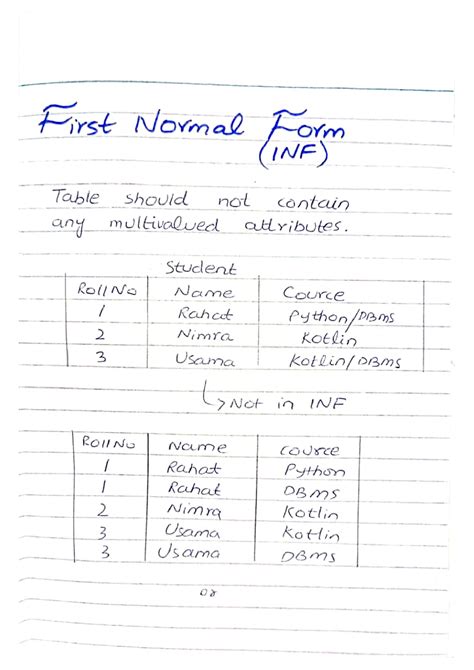 First Normal Form
(1NF)
Table should not contain
any multivalued attributes.
Student
Roll No Name Cource
1 Rahat Python/DBMS
2 Nimra Kotlin
3 Usama Kotlin/DBMS
Not in 1NF
Roll No Name cource
1 Rahat Python
1 Rahat DBMS
2 Nimra Kotlin
3 Usama Kotlin
3 Usama DBMS